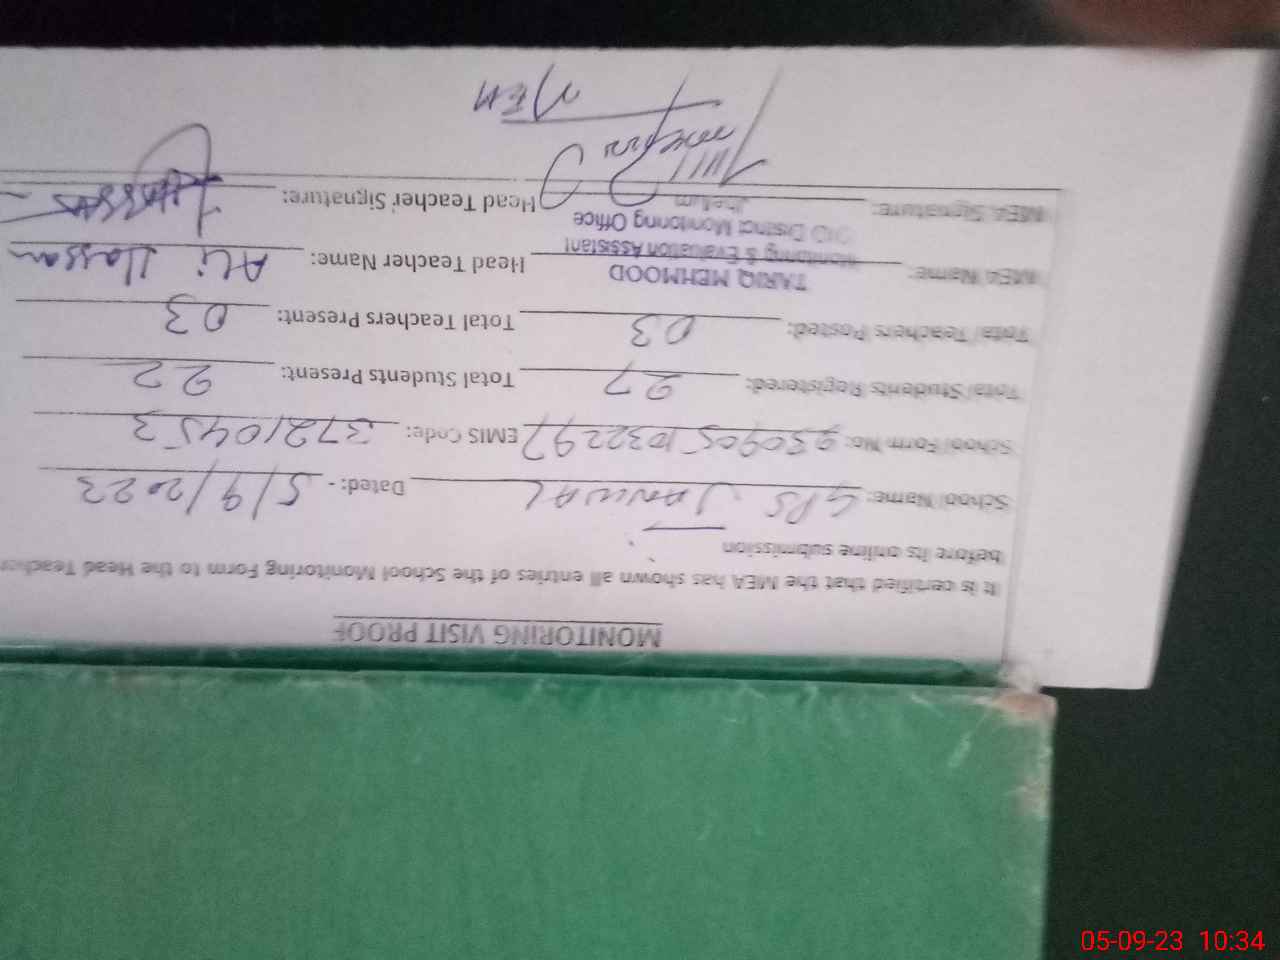 MONITORING VISIT PROOF
It is certified that the MEA has shown all entries of the School Monitoring Form to the Head Teacher
before its online submission
School Name: GPS JANWAL Dated:- 5/9/2023
School Form No: 2309051032297 EMIS Code: 37210453
Total Students Registered: 27 Total Students Present: 22
Total Teachers Posted: 03 Total Teachers Present: 03
MEA Name: TARIQ MEHMOOD Head Teacher Name: Ali Hassan
Monitoring & Evaluation Assistant
O/O District Monitoring Office
Jhelum
MEA Signature: Head Teacher Signature:
MEA
05-09-23 10:34